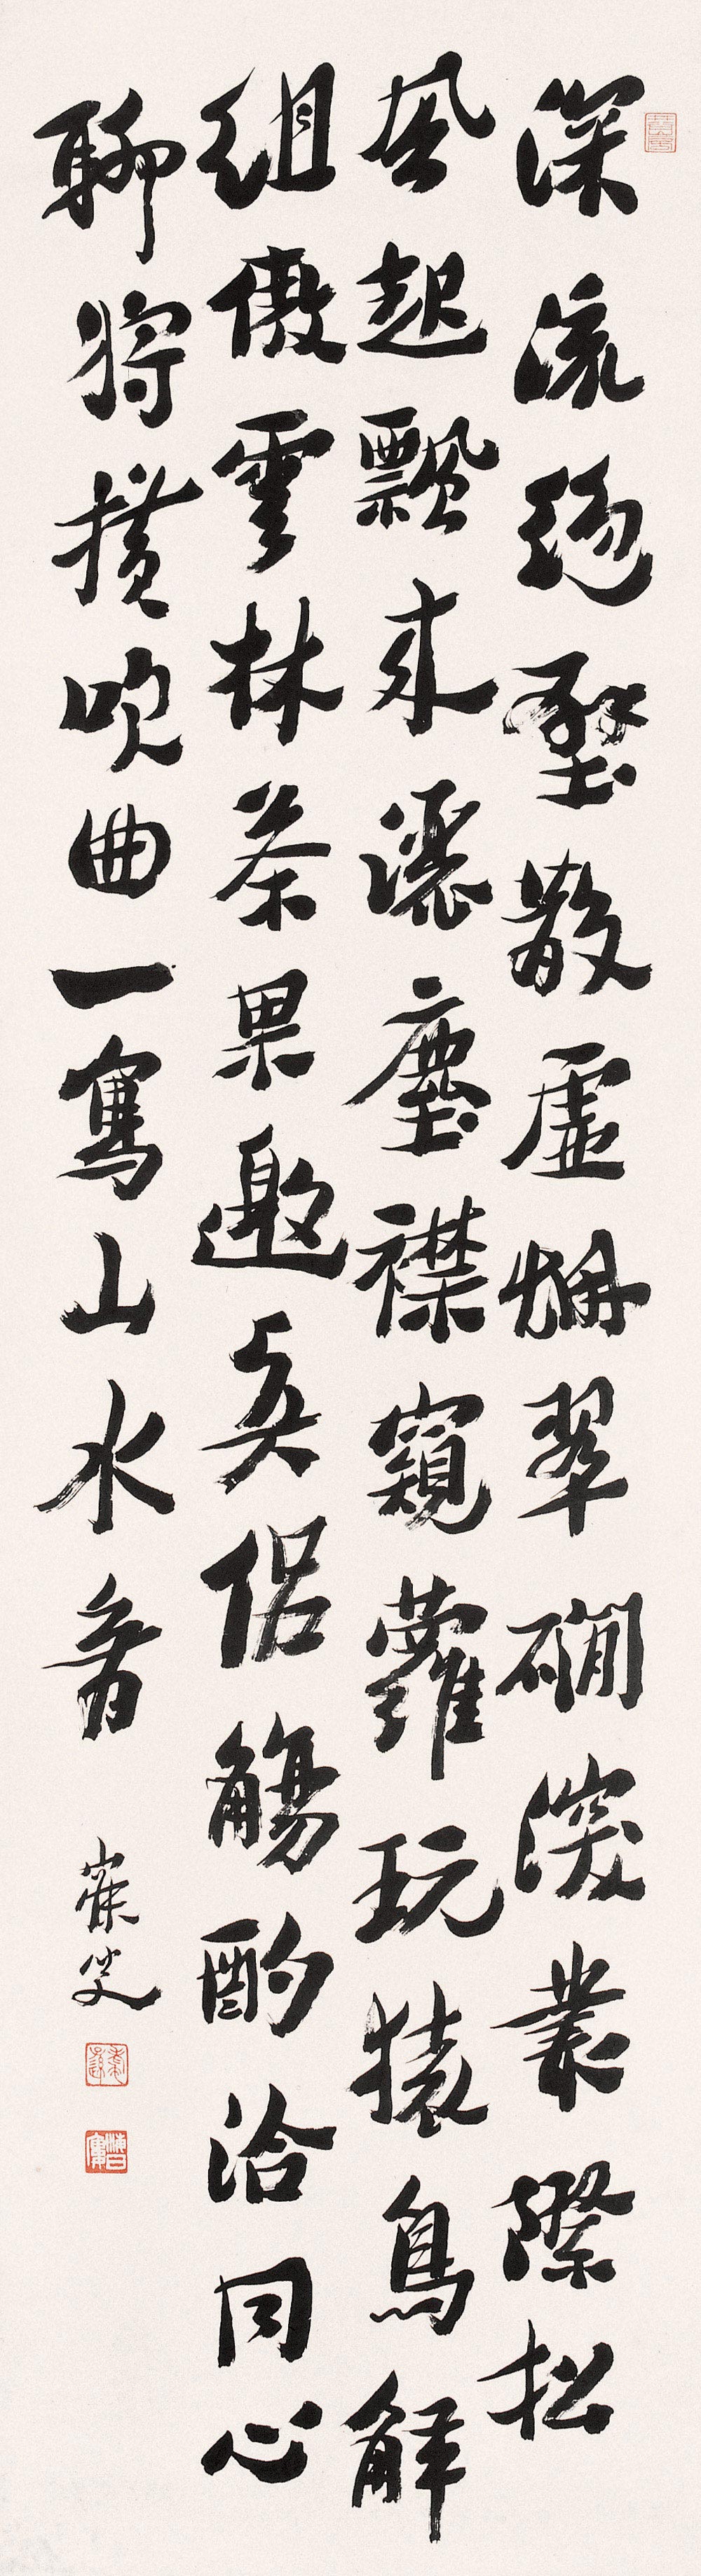 深流絕壑散虛烟翠磵深叢際松
風起飄來灑塵襟窺蘿玩猿鳥解
組傲雲林茶果邀真侶觴酌洽同心
聊將橫吹曲一寫山水音
寐叟